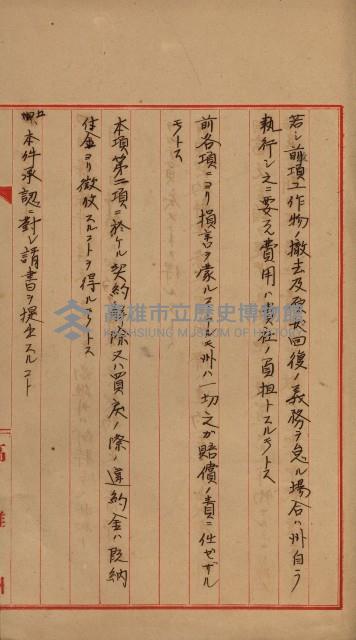 若シ前項工作物ノ撤去及原状回復ノ義務ヲ怠ル場合ハ州自ラ
執行シ之ニ要スル費用ハ貴社ノ負担トスルモノトス
前各項ニヨリ損害ヲ蒙ルコトアルモ州ハ一切之カ賠償ノ責ニ任ゼザル
モノトス
本項第二項ニ於ケル契約解除又ハ買戻ノ際ノ違約金ハ既納
代金ヨリ徴收スルコトヲ得ルモノトス
本件承認ニ對シ請書ヲ提出スルコト
高雄州
高雄市立歷史博物館
KAOHSIUNG MUSEUM OF HISTORY